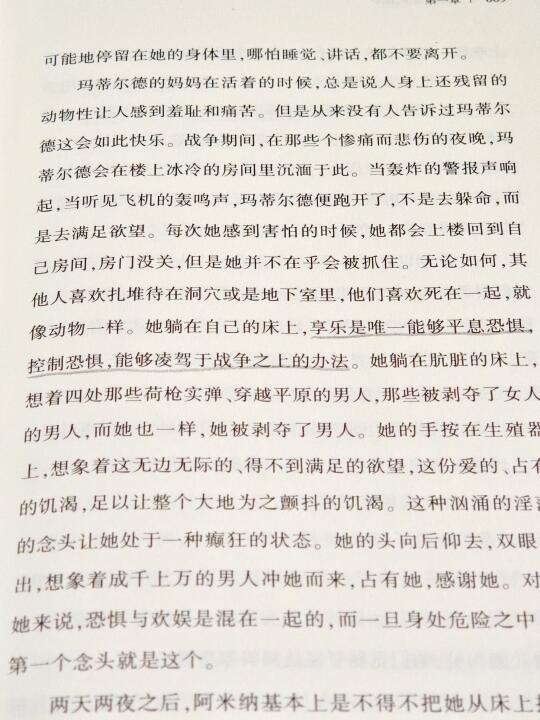 第一章
可能地停留在她的身体里,哪怕睡觉、讲话,都不要离开。
玛蒂尔德的妈妈在活着的时候,总是说人身上还残留的
动物性让人感到羞耻和痛苦。但是从来没有人告诉过玛蒂尔
德这会如此快乐。战争期间,在那些个惨痛而悲伤的夜晚,玛
蒂尔德会在楼上冰冷的房间里沉湎于此。当轰炸的警报声响
起,当听见飞机的轰鸣声,玛蒂尔德便跑开了,不是去躲命,而
是去满足欲望。每次她感到害怕的时候,她都会上楼回到自
己房间,房门没关,但是她并不在乎会被抓住。无论如何,其
他人喜欢扎堆待在洞穴或是地下室里,他们喜欢死在一起,就
像动物一样。她躺在自己的床上,享乐是唯一能够平息恐惧,
控制恐惧,能够凌驾于战争之上的办法。她躺在肮脏的床上,
想着四处那些荷枪实弹、穿越平原的男人,那些被剥夺了女人
的男人,而她也一样,她被剥夺了男人。她的手按在生殖器
上,想象着这无边无际的、得不到满足的欲望,这份爱的、占有
的饥渴,足以让整个大地为之颤抖的饥渴。这种汹涌的淫荡
的念头让她处于一种癫狂的状态。她的头向后仰去,双眼
出,想象着成千上万的男人冲她而来,占有她,感谢她。对
她来说,恐惧与欢娱是混在一起的,而一旦身处危险之中
第一个念头就是这个。
两天两夜之后,阿米纳基本上是不得不把她从床上